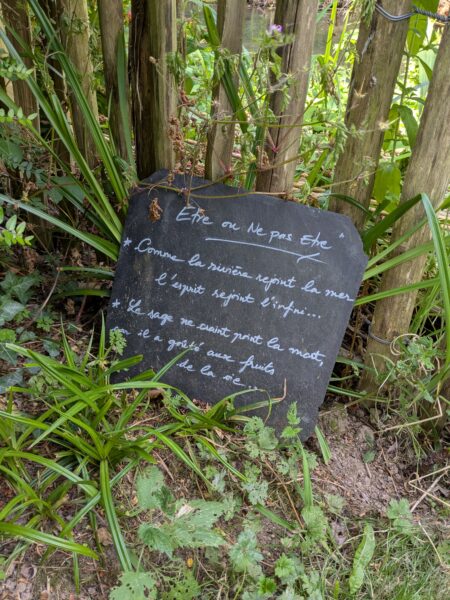 Etre ou Ne pas Etre
* Comme la rivière rejoint la mer
l'esprit rejoint l'infini...
* Le sage ne craint point la mort,
il a goûté aux fruits
de la vie...